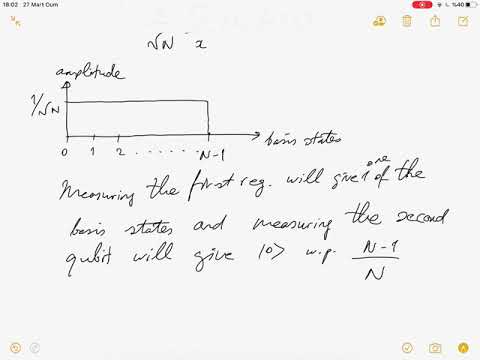 18:02 27 Mart Cum
%40
√N x
amplitude
1/√N
0 1 2 ...... N-1 basis states
one
Measuring the first reg. will give 1 of the
basis states and measuring the second
qubit will give |0> w.p. N-1
N